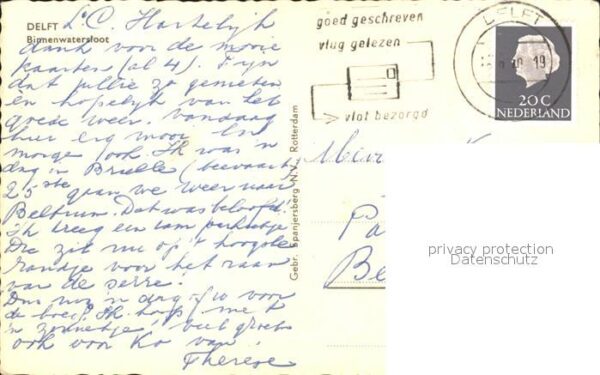 DELFT
Binnenwatersloot
L. C. Hartelijk
dank voor de mooie
kaarten (al 4). Fijn
dat jullie zo genieten
en hopelijk van het
goede weer. Vandaag
hier erg mooi en
morgen ook. Ik was 'n
dag in Brielle (bevaart)
25ste gaan we weer naar
Beltrum. Dat was beloofd.
Ik kreeg een tam parkietje
Die zit nu op 't hoogste
randje voor het raam
van de serre.
Dus nog 'n dag of 10 voor
de boeg! Ik hoop met
'n zonnetje, veel groet
ook voor Ko van
Therese
Gebr. Spanjersberg N.V., Rotterdam
goed geschreven
vlug gelezen
vlot bezorgd
DELFT
20 C
NEDERLAND
Mevr. K
Pa
Be
privacy protection
Datenschutz